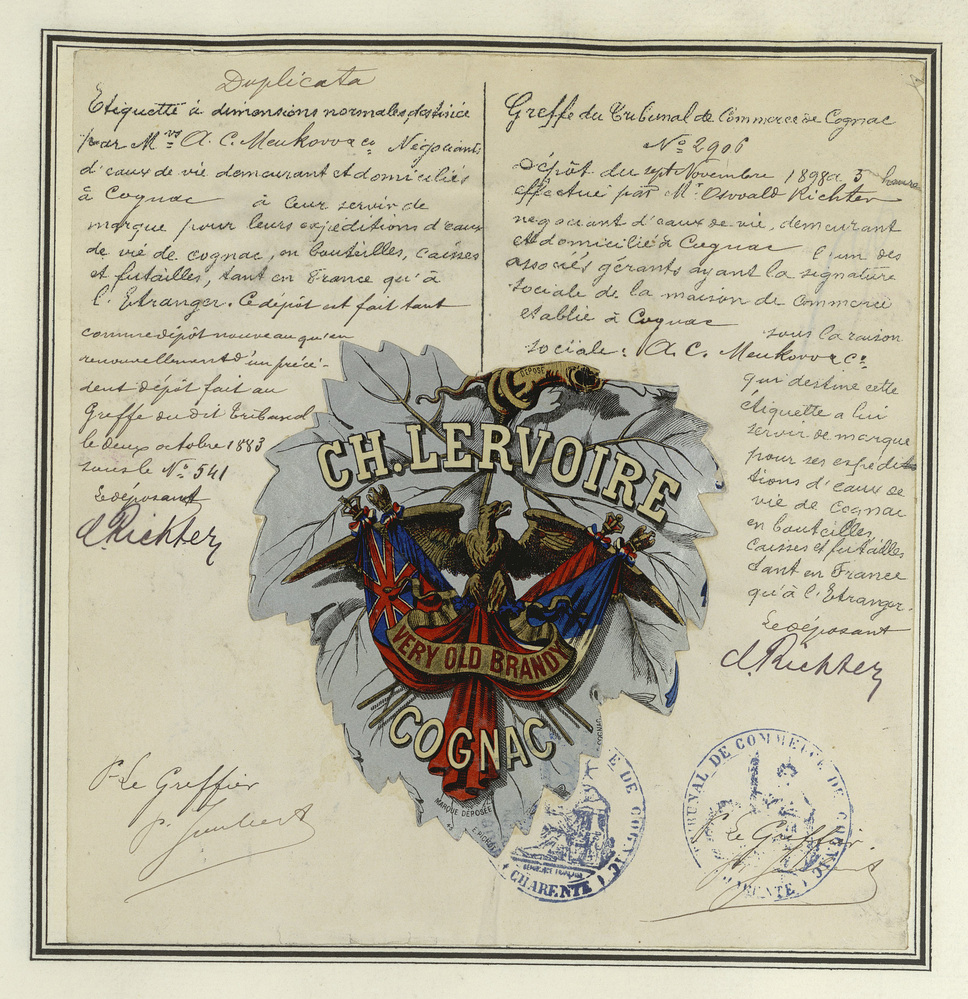 Duplicata
Etiquette à dimensions normales, destinée
par Mrs A. C. Meukow & Co Négociants
d'eaux de vie demeurant et domiciliés
à Cognac à leur servir de
marque pour leurs expéditions d'eaux
de vie de cognac, en bouteilles, caisses
et futailles, tant en France qu'à
l'Etranger. Ce dépôt est fait tant
comme dépôt nouveau qu'en
renouvellement d'un précé-
dent dépôt fait au
Greffe du dit Tribunal
le deux octobre 1883
sous le No 541
Le déposant
O. Richter
Greffe du Tribunal de Commerce de Cognac
No 2906
Dépôt du sept Novembre 1898 à 3 heures
effectué par Mr Oswald Richter
négociant d'eaux de vie, demeurant
et domicilié à Cognac l'un des
associés gérants ayant la signature
sociale de la maison de commerce
etablie à Cognac sous la raison
sociale: A. C. Meukow & Co
qui destine cette
étiquette a lui
servir de marque
pour ses expédi-
tions d'eaux de
vie de cognac
en bouteilles,
caisses et futailles
tant en France
qu'à l'Etranger.
Le déposant
O. Richter
DÉPOSÉ
CH. LERVOIRE
VERY OLD BRANDY
COGNAC
MARQUE DÉPOSÉE
COGNAC
Pr Le Greffier
DE COGNAC
RÉPUBLIQUE FRANÇAISE
(CHARENTE)
TRIBUNAL DE COMMERCE DE COGNAC
(CHARENTE)
Pr Le Greffier